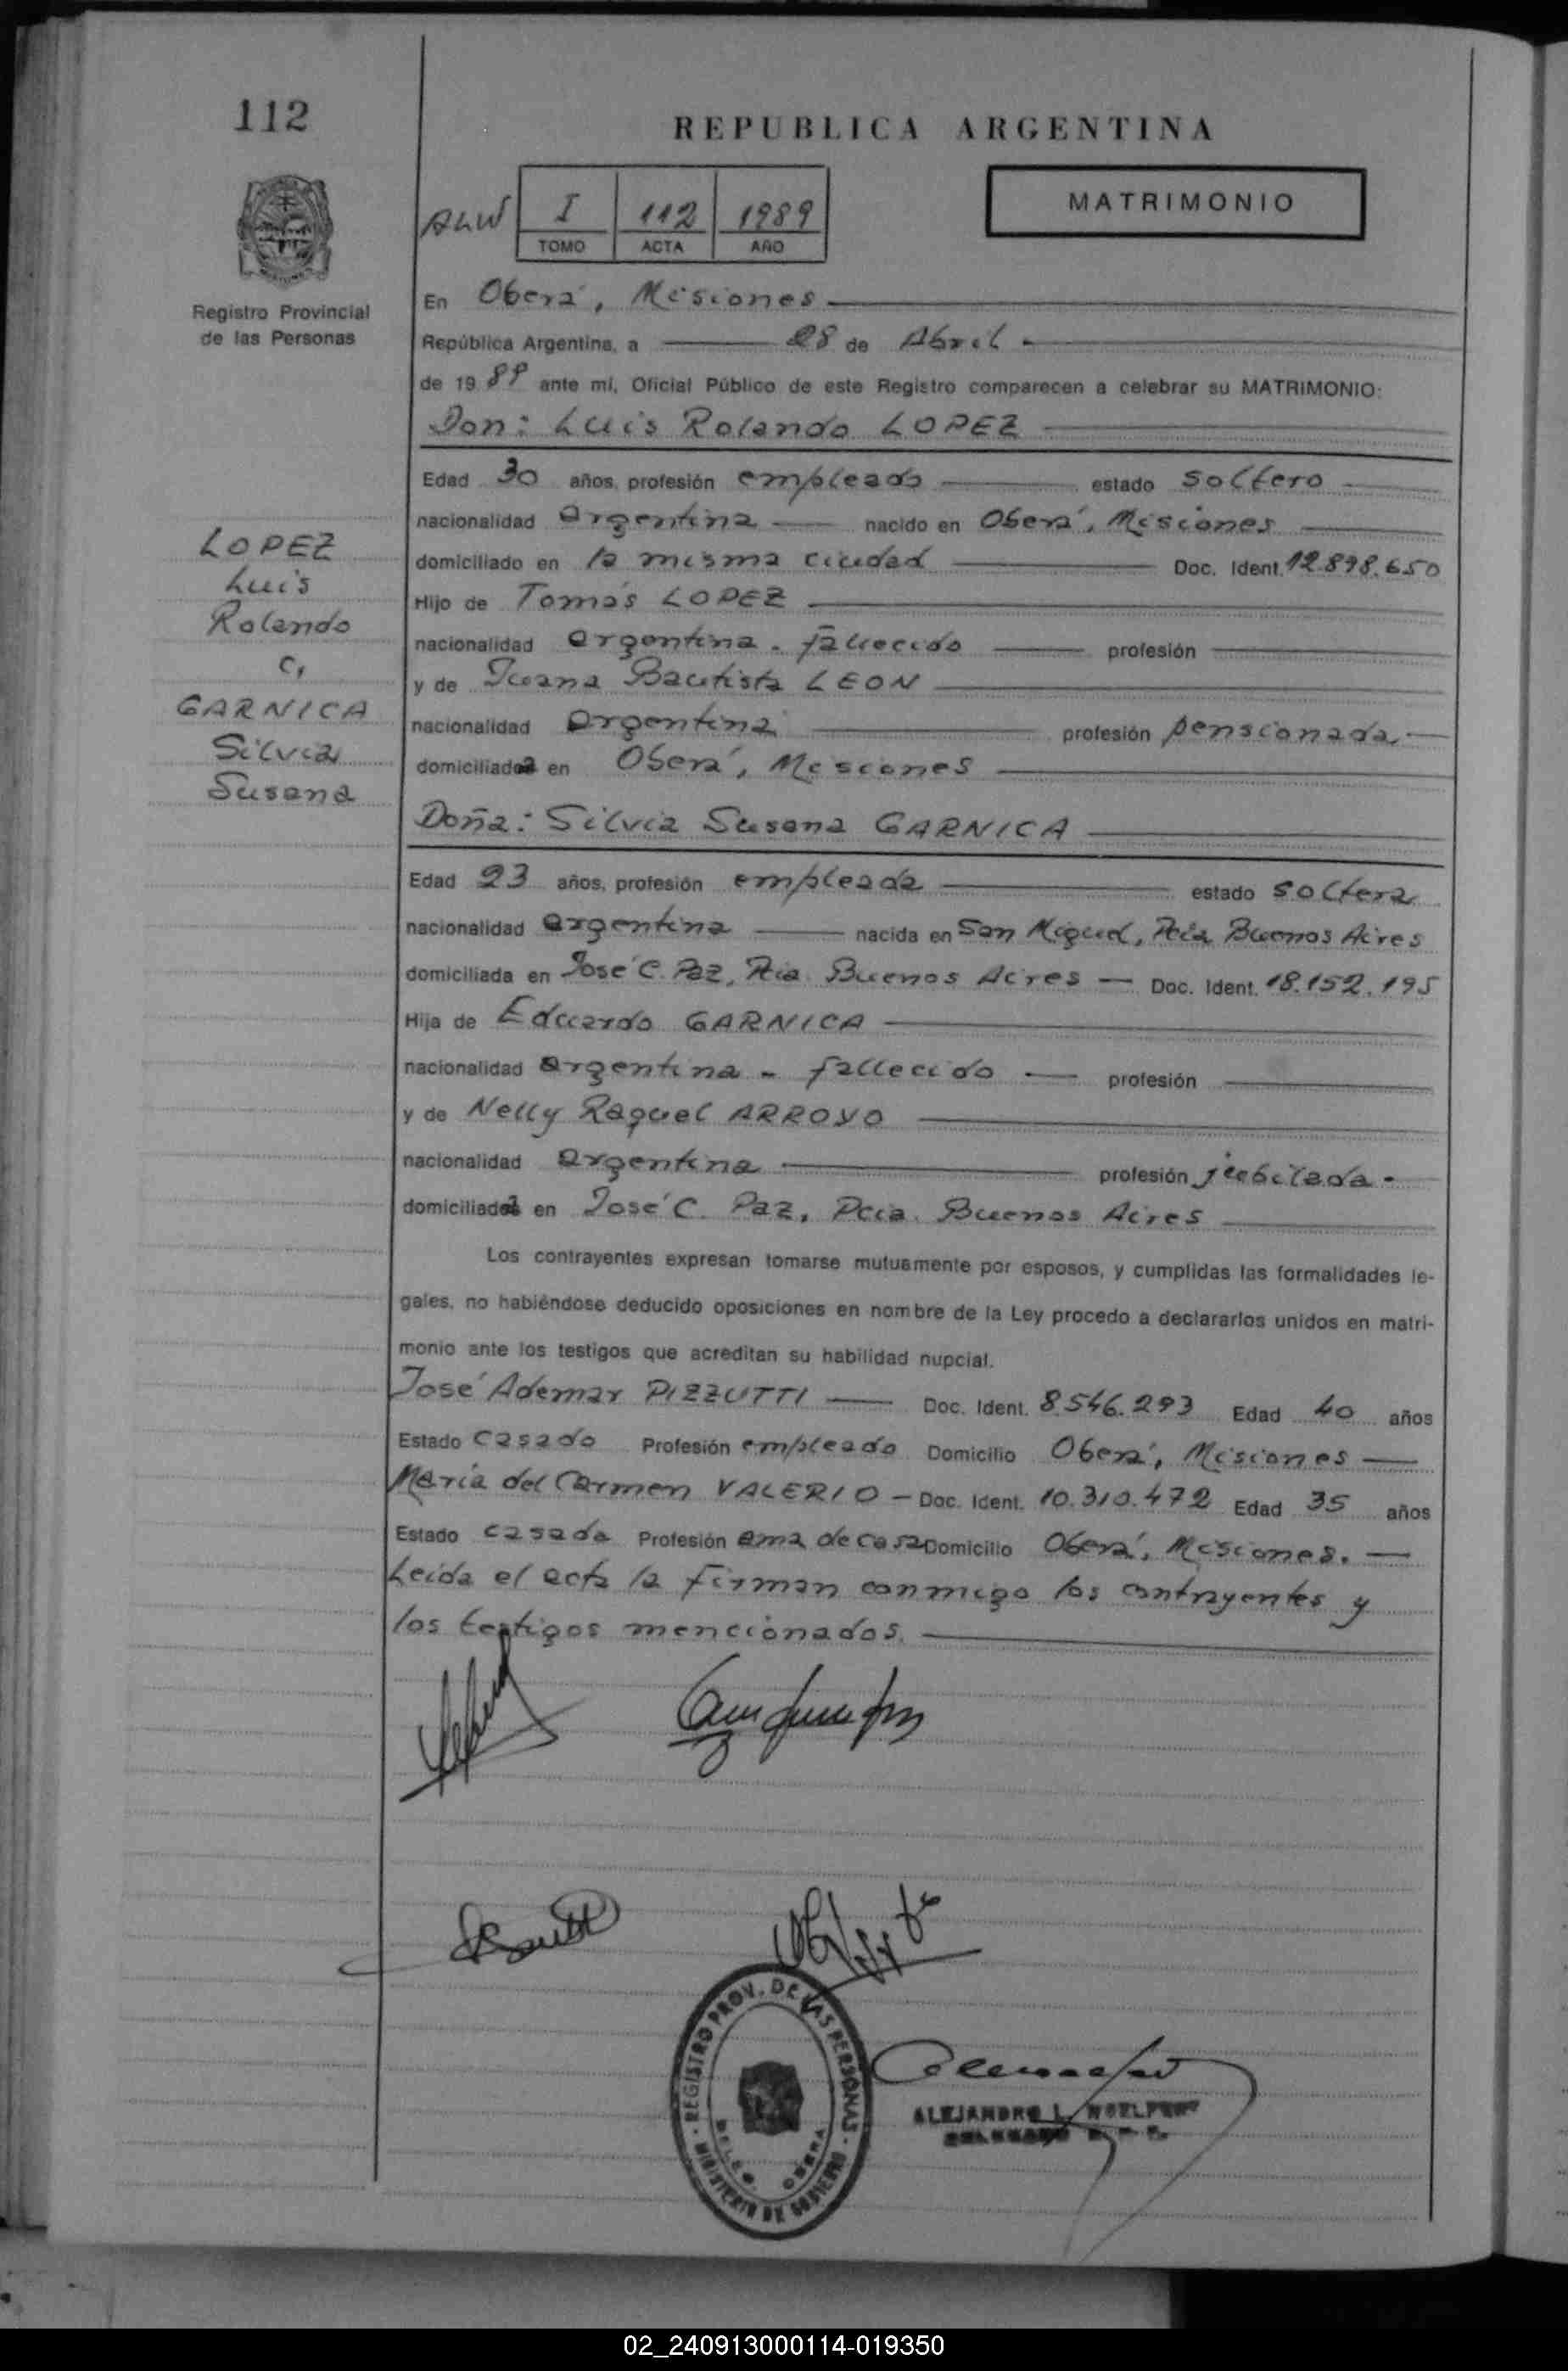 112
REPUBLICA ARGENTINA
MATRIMONIO
ALW
I 112 1989
TOMO ACTA AÑO
Registro Provincial
de las Personas
En Oberá, Misiones
República Argentina, a 28 de Abril
de 1989 ante mí, Oficial Público de este Registro comparecen a celebrar su MATRIMONIO:
Don: Luis Rolando LOPEZ
Edad 30 años, profesión empleado estado soltero
nacionalidad argentina nacido en Oberá, Misiones
domiciliado en la misma ciudad Doc. Ident. 12.898.650
Hijo de Tomás LOPEZ
nacionalidad argentina - fallecido profesión
y de Juana Bautista LEON
nacionalidad argentina profesión pensionada
domiciliada en Oberá, Misiones
LOPEZ
Luis
Rolando
c,
GARNICA
Silvia
Susana
Doña: Silvia Susana GARNICA
Edad 23 años, profesión empleada estado soltera
nacionalidad argentina nacida en San Miguel, Pcia Buenos Aires
domiciliada en José C. Paz, Pcia. Buenos Aires Doc. Ident. 18.152.195
Hija de Eduardo GARNICA
nacionalidad argentina - fallecido profesión
y de Nelly Raquel ARROYO
nacionalidad argentina profesión jubilada
domiciliada en José C. Paz, Pcia. Buenos Aires
Los contrayentes expresan tomarse mutuamente por esposos, y cumplidas las formalidades le-
gales, no habiéndose deducido oposiciones en nombre de la Ley procedo a declararlos unidos en matri-
monio ante los testigos que acreditan su habilidad nupcial.
José Ademar PIZZUTTI Doc. Ident. 8.546.293 Edad 40 años
Estado casado Profesión empleado Domicilio Oberá, Misiones
María del Carmen VALERIO - Doc. Ident. 10.310.472 Edad 35 años
Estado casada Profesión ama de casa Domicilio Oberá, Misiones.
Leída el acta la firman conmigo los contrayentes y
los testigos mencionados.
REGISTRO PROV. DE LAS PERSONAS
DELEG. OBERA
MINISTERIO DE GOBIERNO
ALEJANDRO L.
02_240913000114-019350